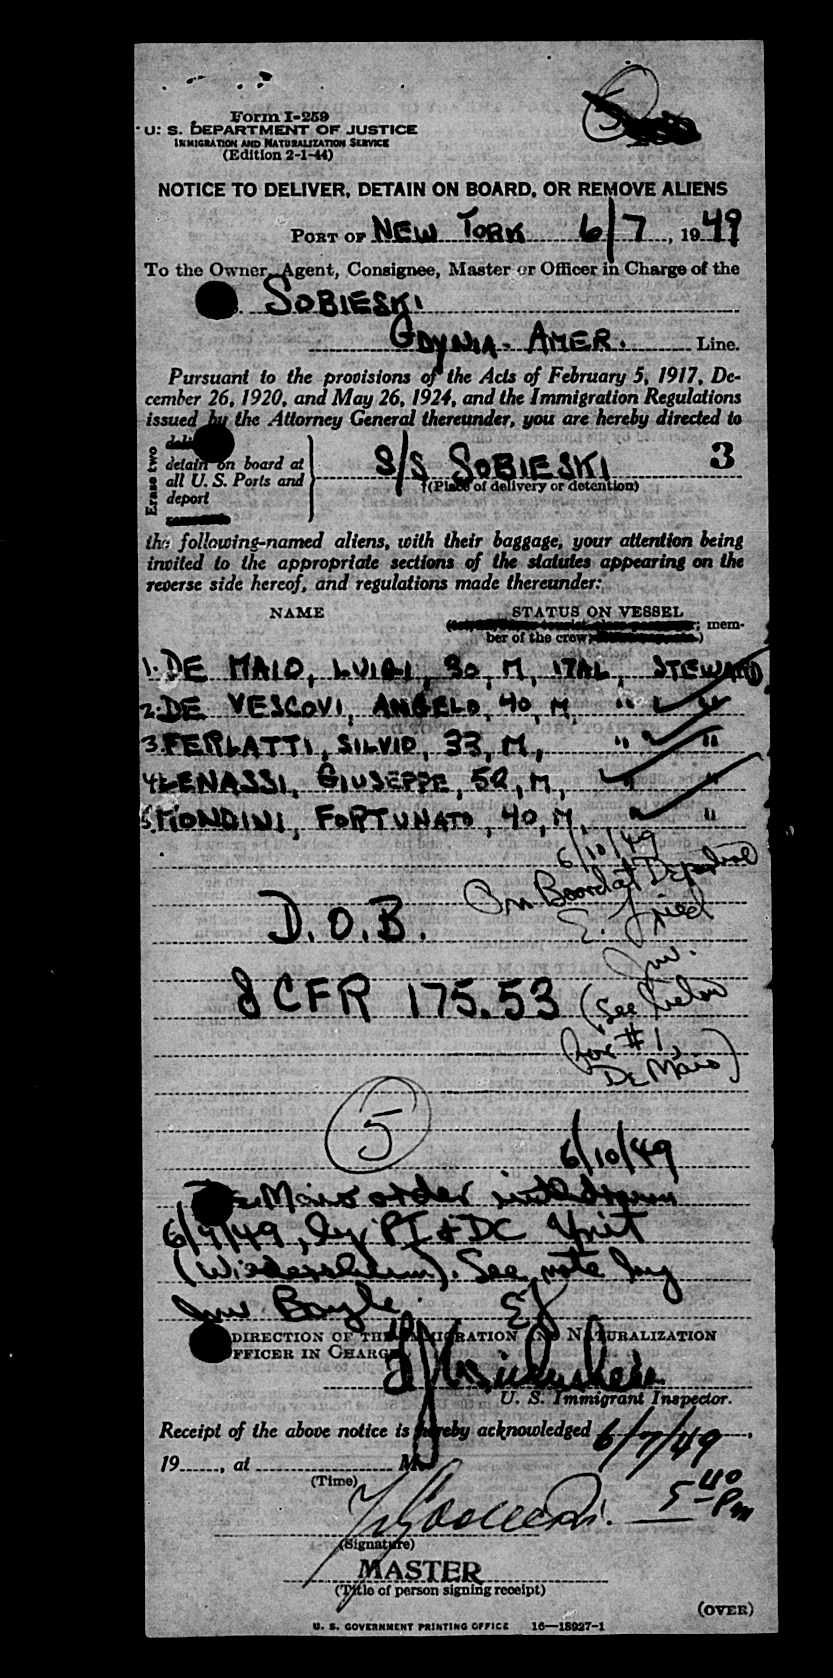 Form I-259
U. S. DEPARTMENT OF JUSTICE
IMMIGRATION AND NATURALIZATION SERVICE
(Edition 2-1-44)
NOTICE TO DELIVER, DETAIN ON BOARD, OR REMOVE ALIENS
PORT OF NEW YORK 6/7, 1949
To the Owner, Agent, Consignee, Master or Officer in Charge of the
SOBIESKI
GDYNIA-AMER. Line.
Pursuant to the provisions of the Acts of February 5, 1917, De-
cember 26, 1920, and May 26, 1924, and the Immigration Regulations
issued by the Attorney General thereunder, you are hereby directed to
Erase two
detain on board at
all U. S. Ports and
deport
S/S SOBIESKI 3
(Place of delivery or detention)
the following-named aliens, with their baggage, your attention being
invited to the appropriate sections of the statutes appearing on the
reverse side hereof, and regulations made thereunder:
NAME STATUS ON VESSEL
; mem-
ber of the crew; )
1. DE MAIO, LUIGI, 30, M, ITAL, STEWARD
2. DE VESCOVI, ANGELO, 40, M, " "
3. FERLATTI, SILVIO, 33, M, " "
4. LENASSI, GIUSEPPE, 52, M, " "
5. MONDINI, FORTUNATO, 40, M, " "
6/10/49
On Board at Departure
E. Fried
D.O.B.
Inv.
8 CFR 175.53
(See below
for #1,
De Maio)
5
6/10/49
De Maio order withdrawn
6/9/49, by PI & DC Unit
(Wiedersheim). See note by
Inv. Boyle. EF
DIRECTION OF THE IMMIGRATION AND NATURALIZATION
OFFICER IN CHARGE
U. S. Immigrant Inspector.
Receipt of the above notice is hereby acknowledged 6/7/49,
19......, at ................ M.
(Time)
5 40 Pm
(Signature)
MASTER
(Title of person signing receipt)
(OVER)
U. S. GOVERNMENT PRINTING OFFICE 16—18927-1